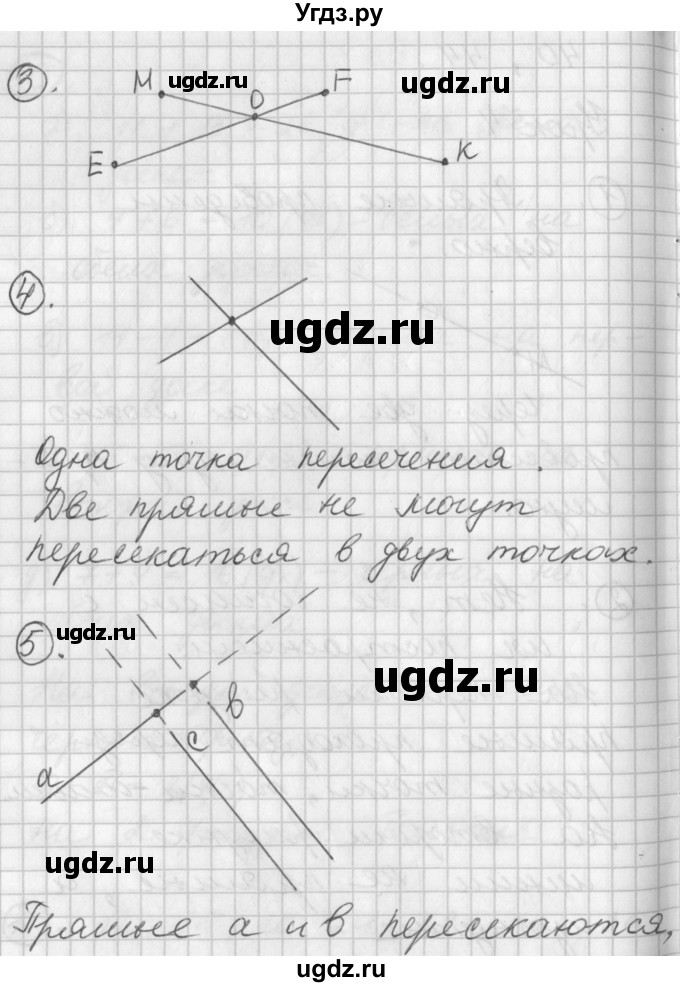 Угдз.ру
3. M ugdz.ru O F ugdz.ru
E K
4.
ugdz.ru
Одна точка пересечения.
Две прямые не могут
пересекаться в двух точках.
5. ugdz.ru
ugdz.ru
b
c
a
ugdz.ru
Прямые a и b пересекаются,
ugdz.ru